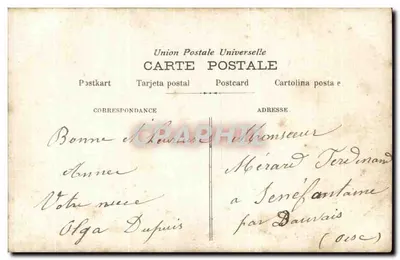 Union Postale Universelle
CARTE POSTALE
Postkart Tarjeta postal Postcard Cartolina posta e
CORRESPONDANCE
ADRESSE
Bonne & Heureuse
Année
Votre niece
Olga Dupuis
Monsieur
Mérard Ferdinand
a Senéfontaine
par Bauvais
(Oise)